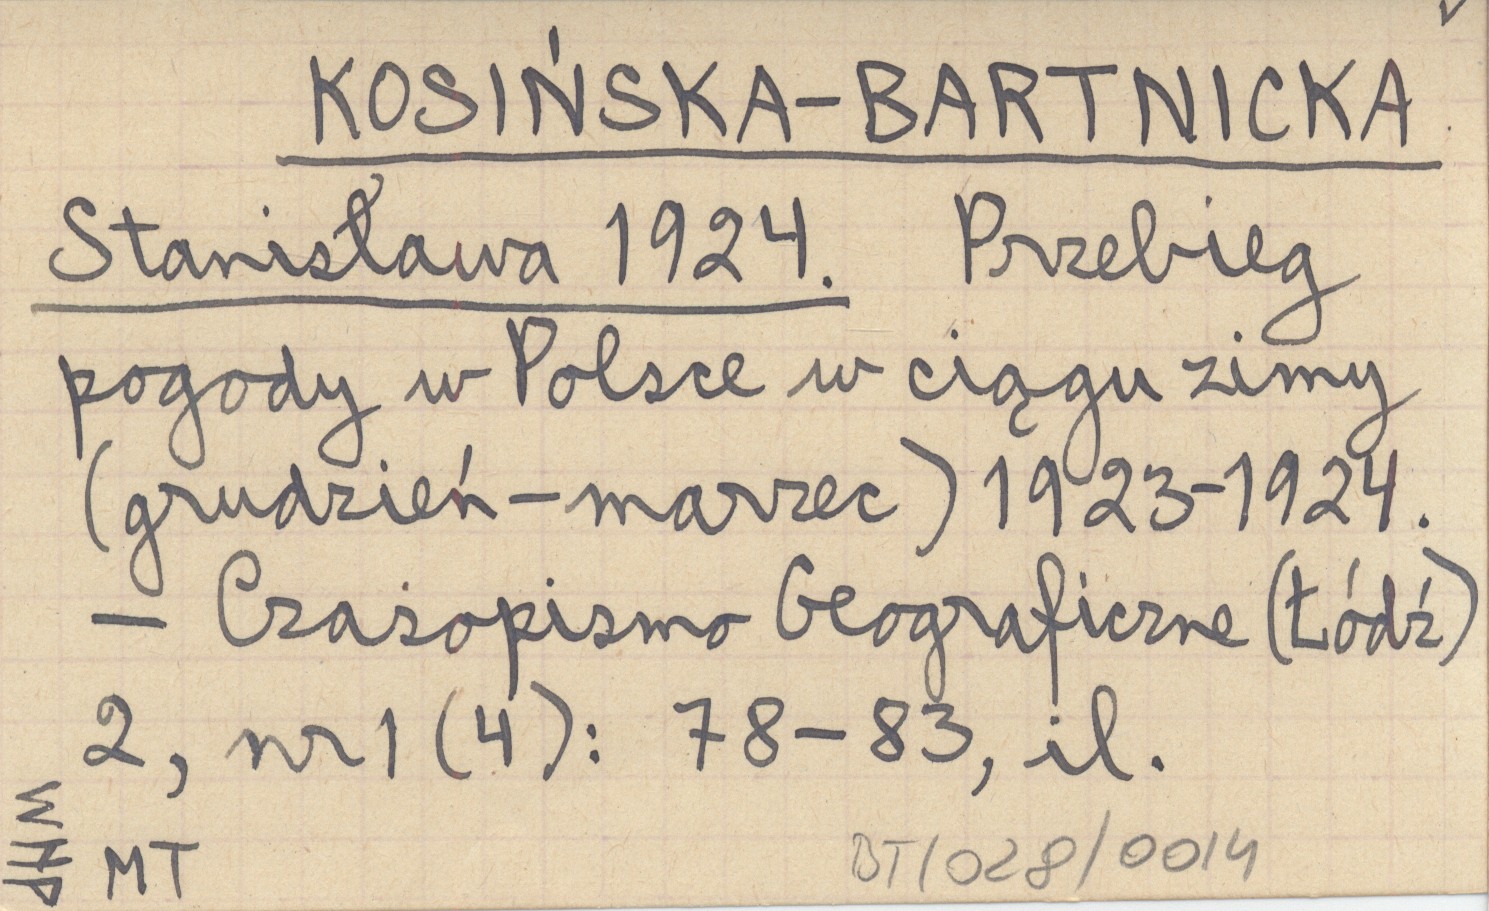 KOSIŃSKA-BARTNICKA
Stanisława 1924. Przebieg
pogody w Polsce w ciągu zimy
(grudzień - marzec) 1923-1924.
- Czasopismo Geograficzne (Łódź)
2, nr 1 (4): 78-83, il.
WHP
MT
BT/028/0014